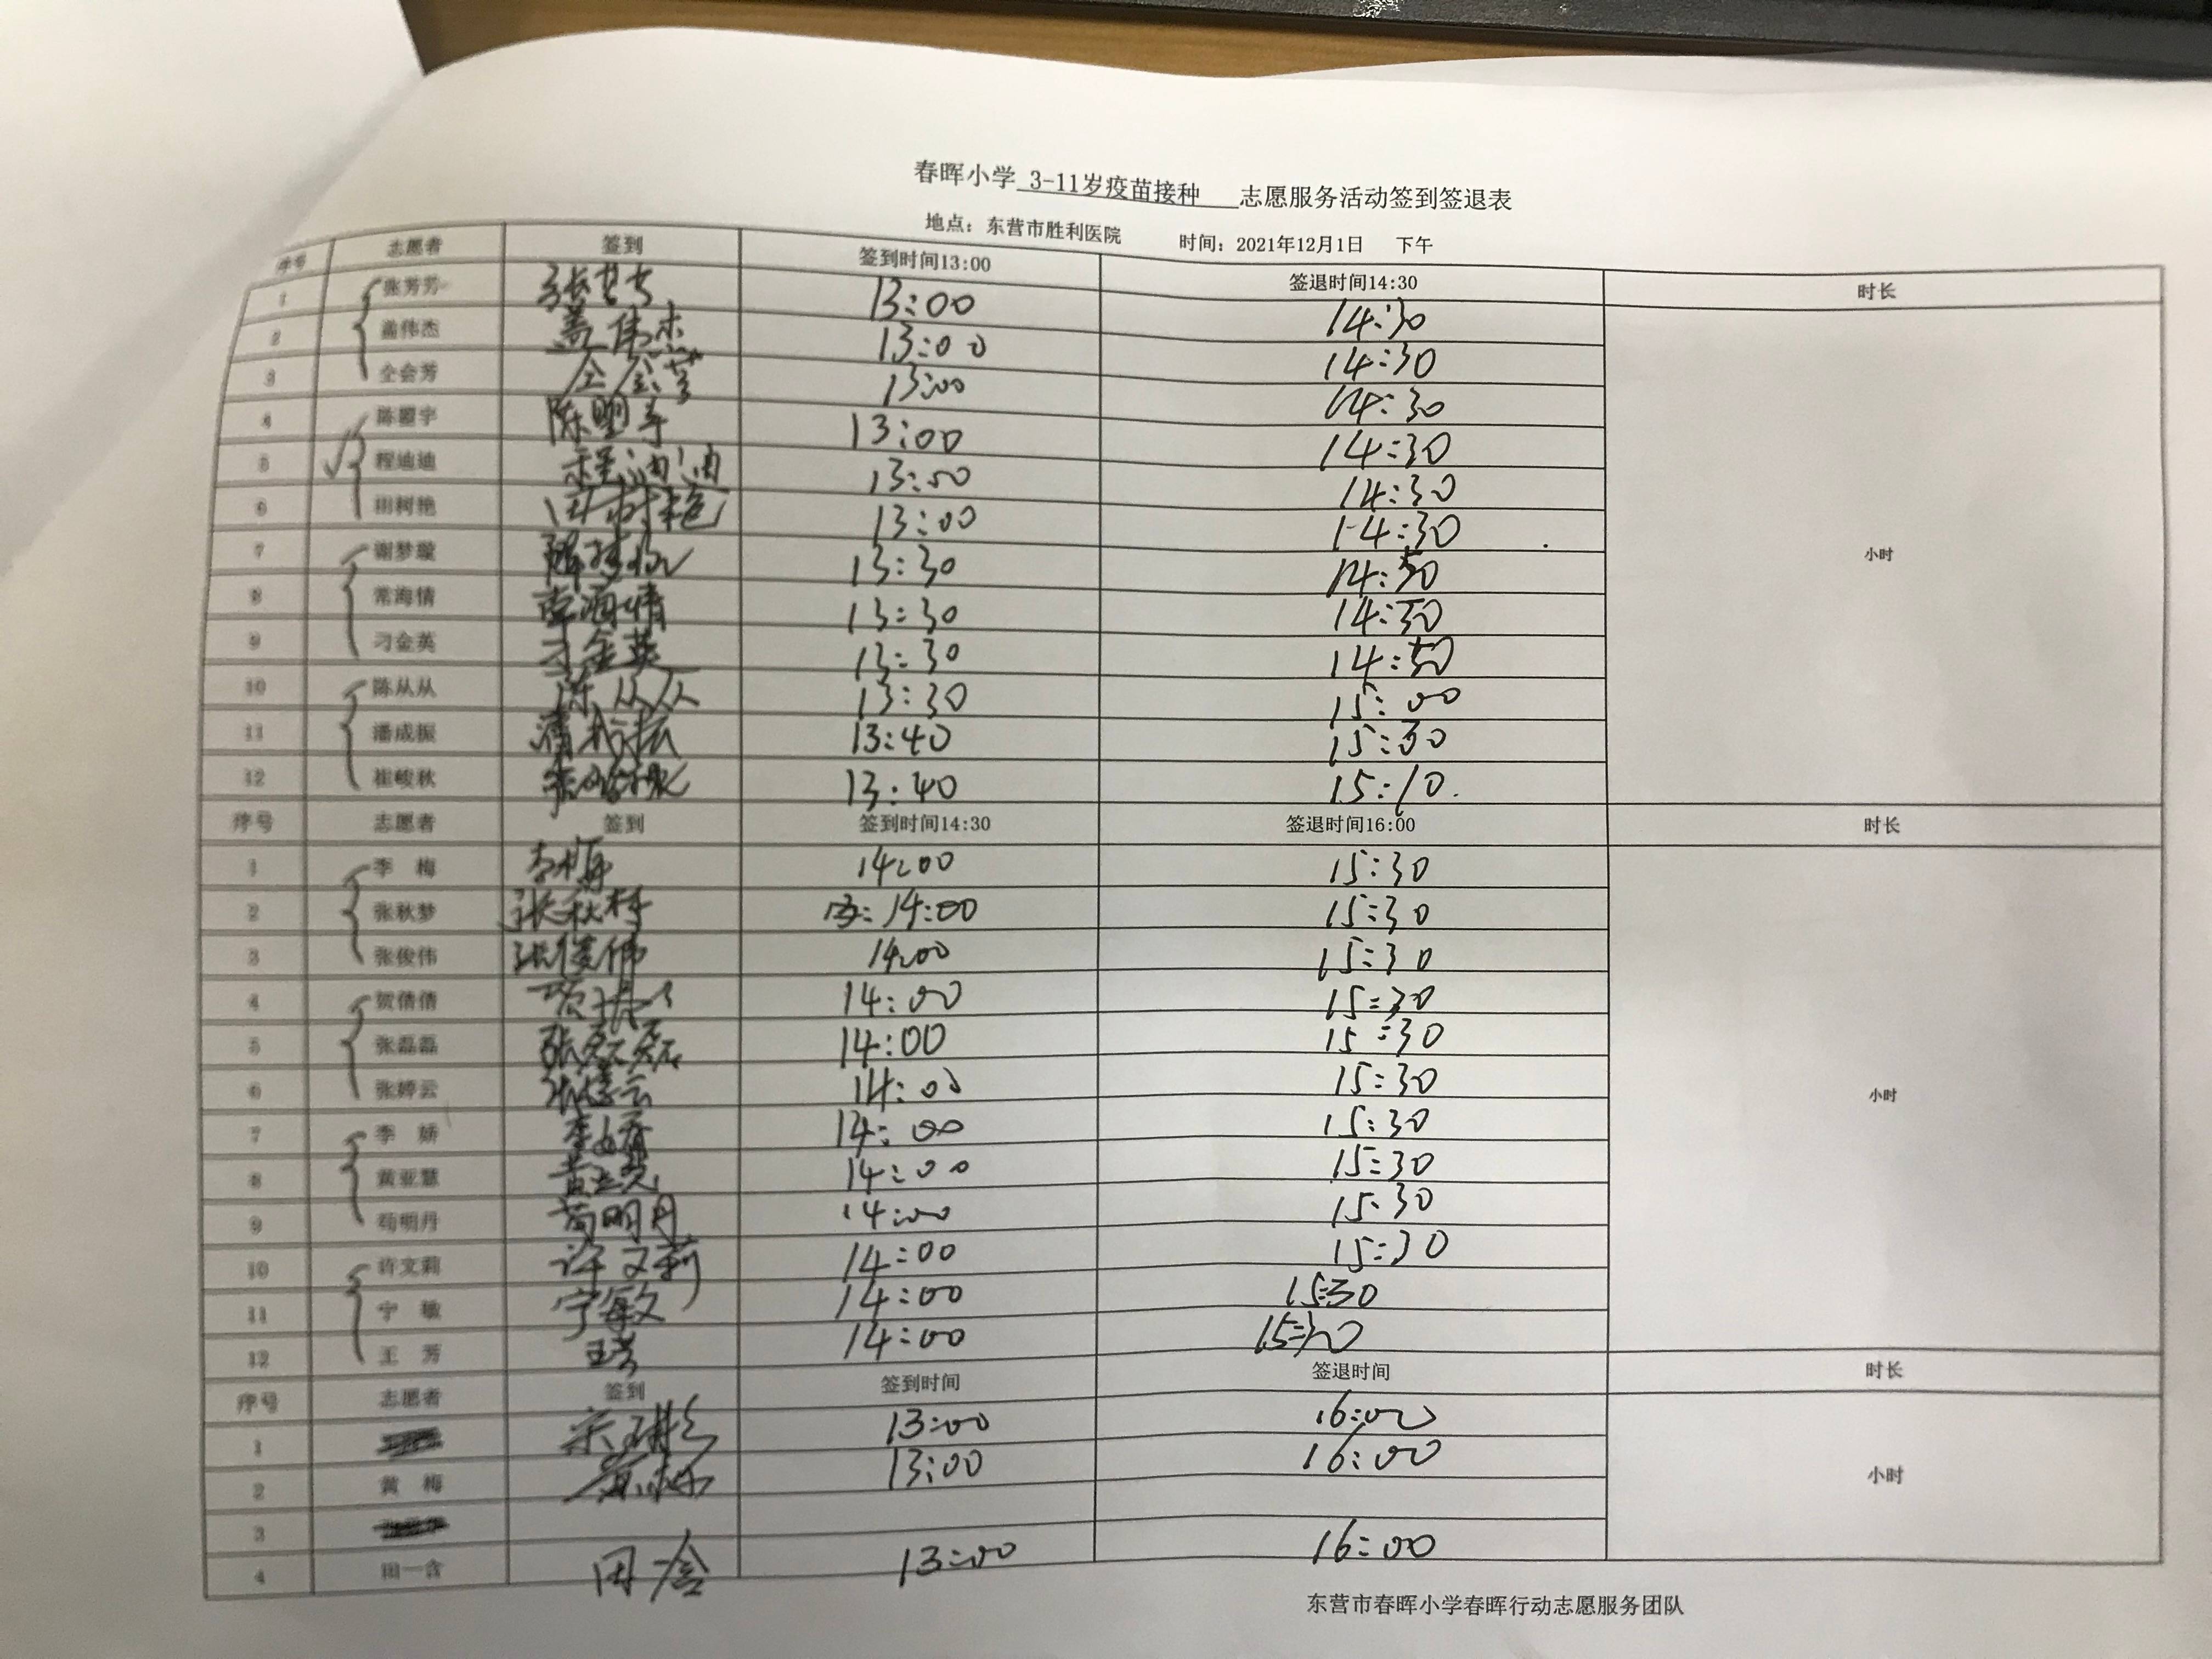 春晖小学 3-11岁疫苗接种 志愿服务活动签到签退表
地点：东营市胜利医院 时间：2021年12月1日 下午
序号 志愿者 签到 签到时间13:00 签退时间14:30 时长
1 张芳芳 张芳芳 13:00 14:30
2 盖伟杰 盖伟杰 13:00 14:30
3 仝会芳 仝会芳 13:00 14:30
4 陈盟宇 陈盟宇 13:00 14:30
5 程迪迪 程迪迪 13:00 14:30
6 田树艳 田树艳 13:00 14:30
7 谢梦璇 13:30 14:50
小时
8 常海情 常海情 13:30 14:50
9 刁金英 刁金英 13:30 14:50
10 陈从从 陈从从 13:30 15:00
11 潘成振 潘成振 13:40 15:30
12 崔峻秋 13:40 15:10.
序号 志愿者 签到 签到时间14:30 签退时间16:00 时长
1 李 梅 李梅 14:00 15:30
2 张秋梦 张秋梦 14:00 15:30
3 张俊伟 张俊伟 14:00 15:30
4 贺倩倩 14:00 15:30
5 张磊磊 张磊磊 14:00 15:30
6 张婷云 张婷云 14:00 15:30
小时
7 李 娇 李娇 14:00 15:30
8 黄亚慧 14:00 15:30
9 苟明丹 苟明丹 14:00 15:30
10 许文莉 许文莉 14:00 15:30
11 宁 敏 宁敏 14:00 15:30
12 王 芳 王芳 14:00 15:30
序号 志愿者 签到 签到时间 签退时间 时长
1 13:00 16:00
2 黄 梅 黄梅 13:00 16:00
小时
3
4 田一含 田一含 13:00 16:00
东营市春晖小学春晖行动志愿服务团队